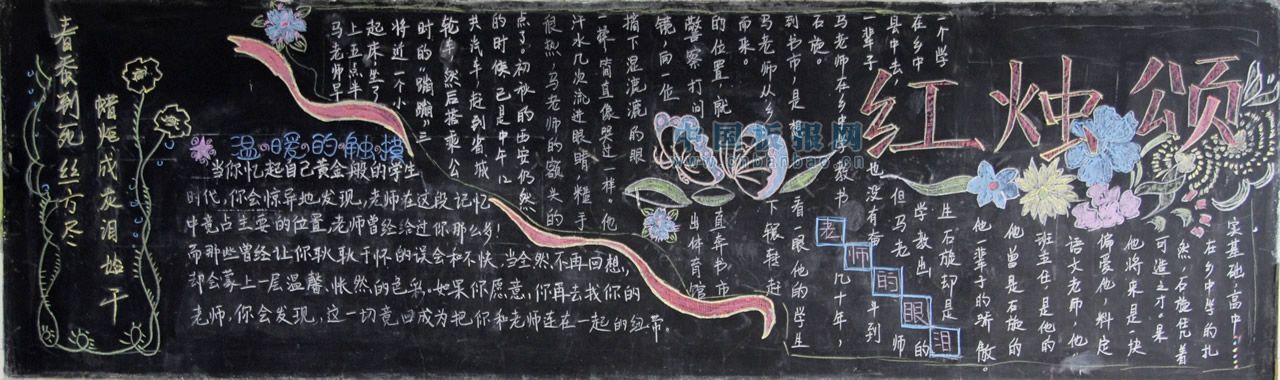 红烛颂
春蚕到死丝方尽
蜡炬成灰泪始干
温暖的触摸
当你忆起自己黄金般的学生
时代,你会惊异地发现,老师在这段记忆
中竟占主要的位置,老师曾经给过你那么多!
而那些曾经让你耿耿于怀的误会和不快,当全然不再回想,
却会蒙上一层温馨、怅然的色彩。如果你愿意,你再去找你的
老师,你会发现,这一切竟回成为把你和老师连在一起的纽带。
老师的眼泪
马老师早
上五点半
起床,坐了
将近一个小
时的“蹦蹦”三
轮车,然后搭乘公
共汽车,赶到省城
的时候,已是中午12
点了。初秋的西安仍然
很热,马老师的额头的
汗水几次流进眼睛,糙手
一挥,简直像哭过一样。他
摘下湿漉漉的眼
镜,向一位
警察打问出体育馆
的位置,就直奔书市
而来。
马老师从乡下辗转赶
到书市,是想看一眼他的学生
石旋。
马老师在乡中教书几十年,
一辈子也没有奋斗到
县中去,但马老师
在乡中学教出的
一个学生石旋却是
他一辈子的骄傲。
他曾是石旋的
班主任,是他的
语文老师,他
偏爱他,料定
他将来是一块
可造之才。果
然,石旋凭着
在乡中学的扎
实基础,高中……
中国板报网